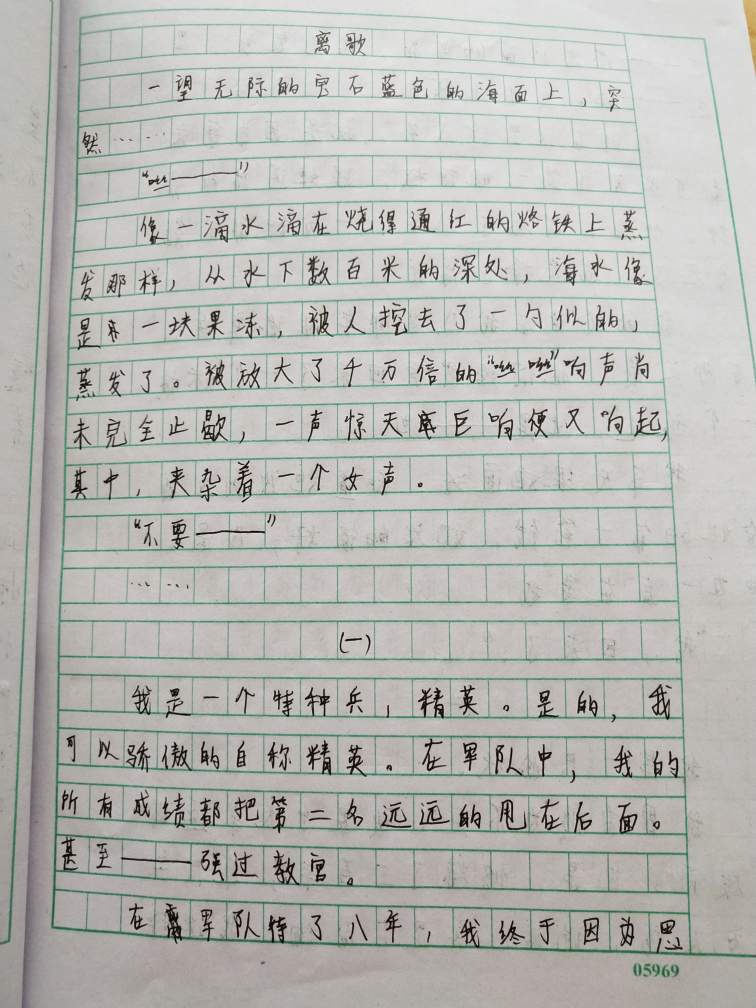 离歌
一望无际的宝石蓝色的海面上，突
然……
“咝——”
像一滴水滴在烧得通红的烙铁上蒸
发那样，从水下数百米的深处，海水像
是一块果冻，被人挖去了一勺似的，
蒸发了。被放大了千万倍的“咝咝”响声尚
未完全止歇，一声惊天巨响便又响起，
其中，夹杂着一个女声。
“不要——”
……
（一）
我是一个特种兵，精英。是的，我
可以骄傲的自称精英。在军队中，我的
所有成绩都把第二名远远的甩在后面。
甚至——强过教官。
在军队待了八年，我终于因为思
05969